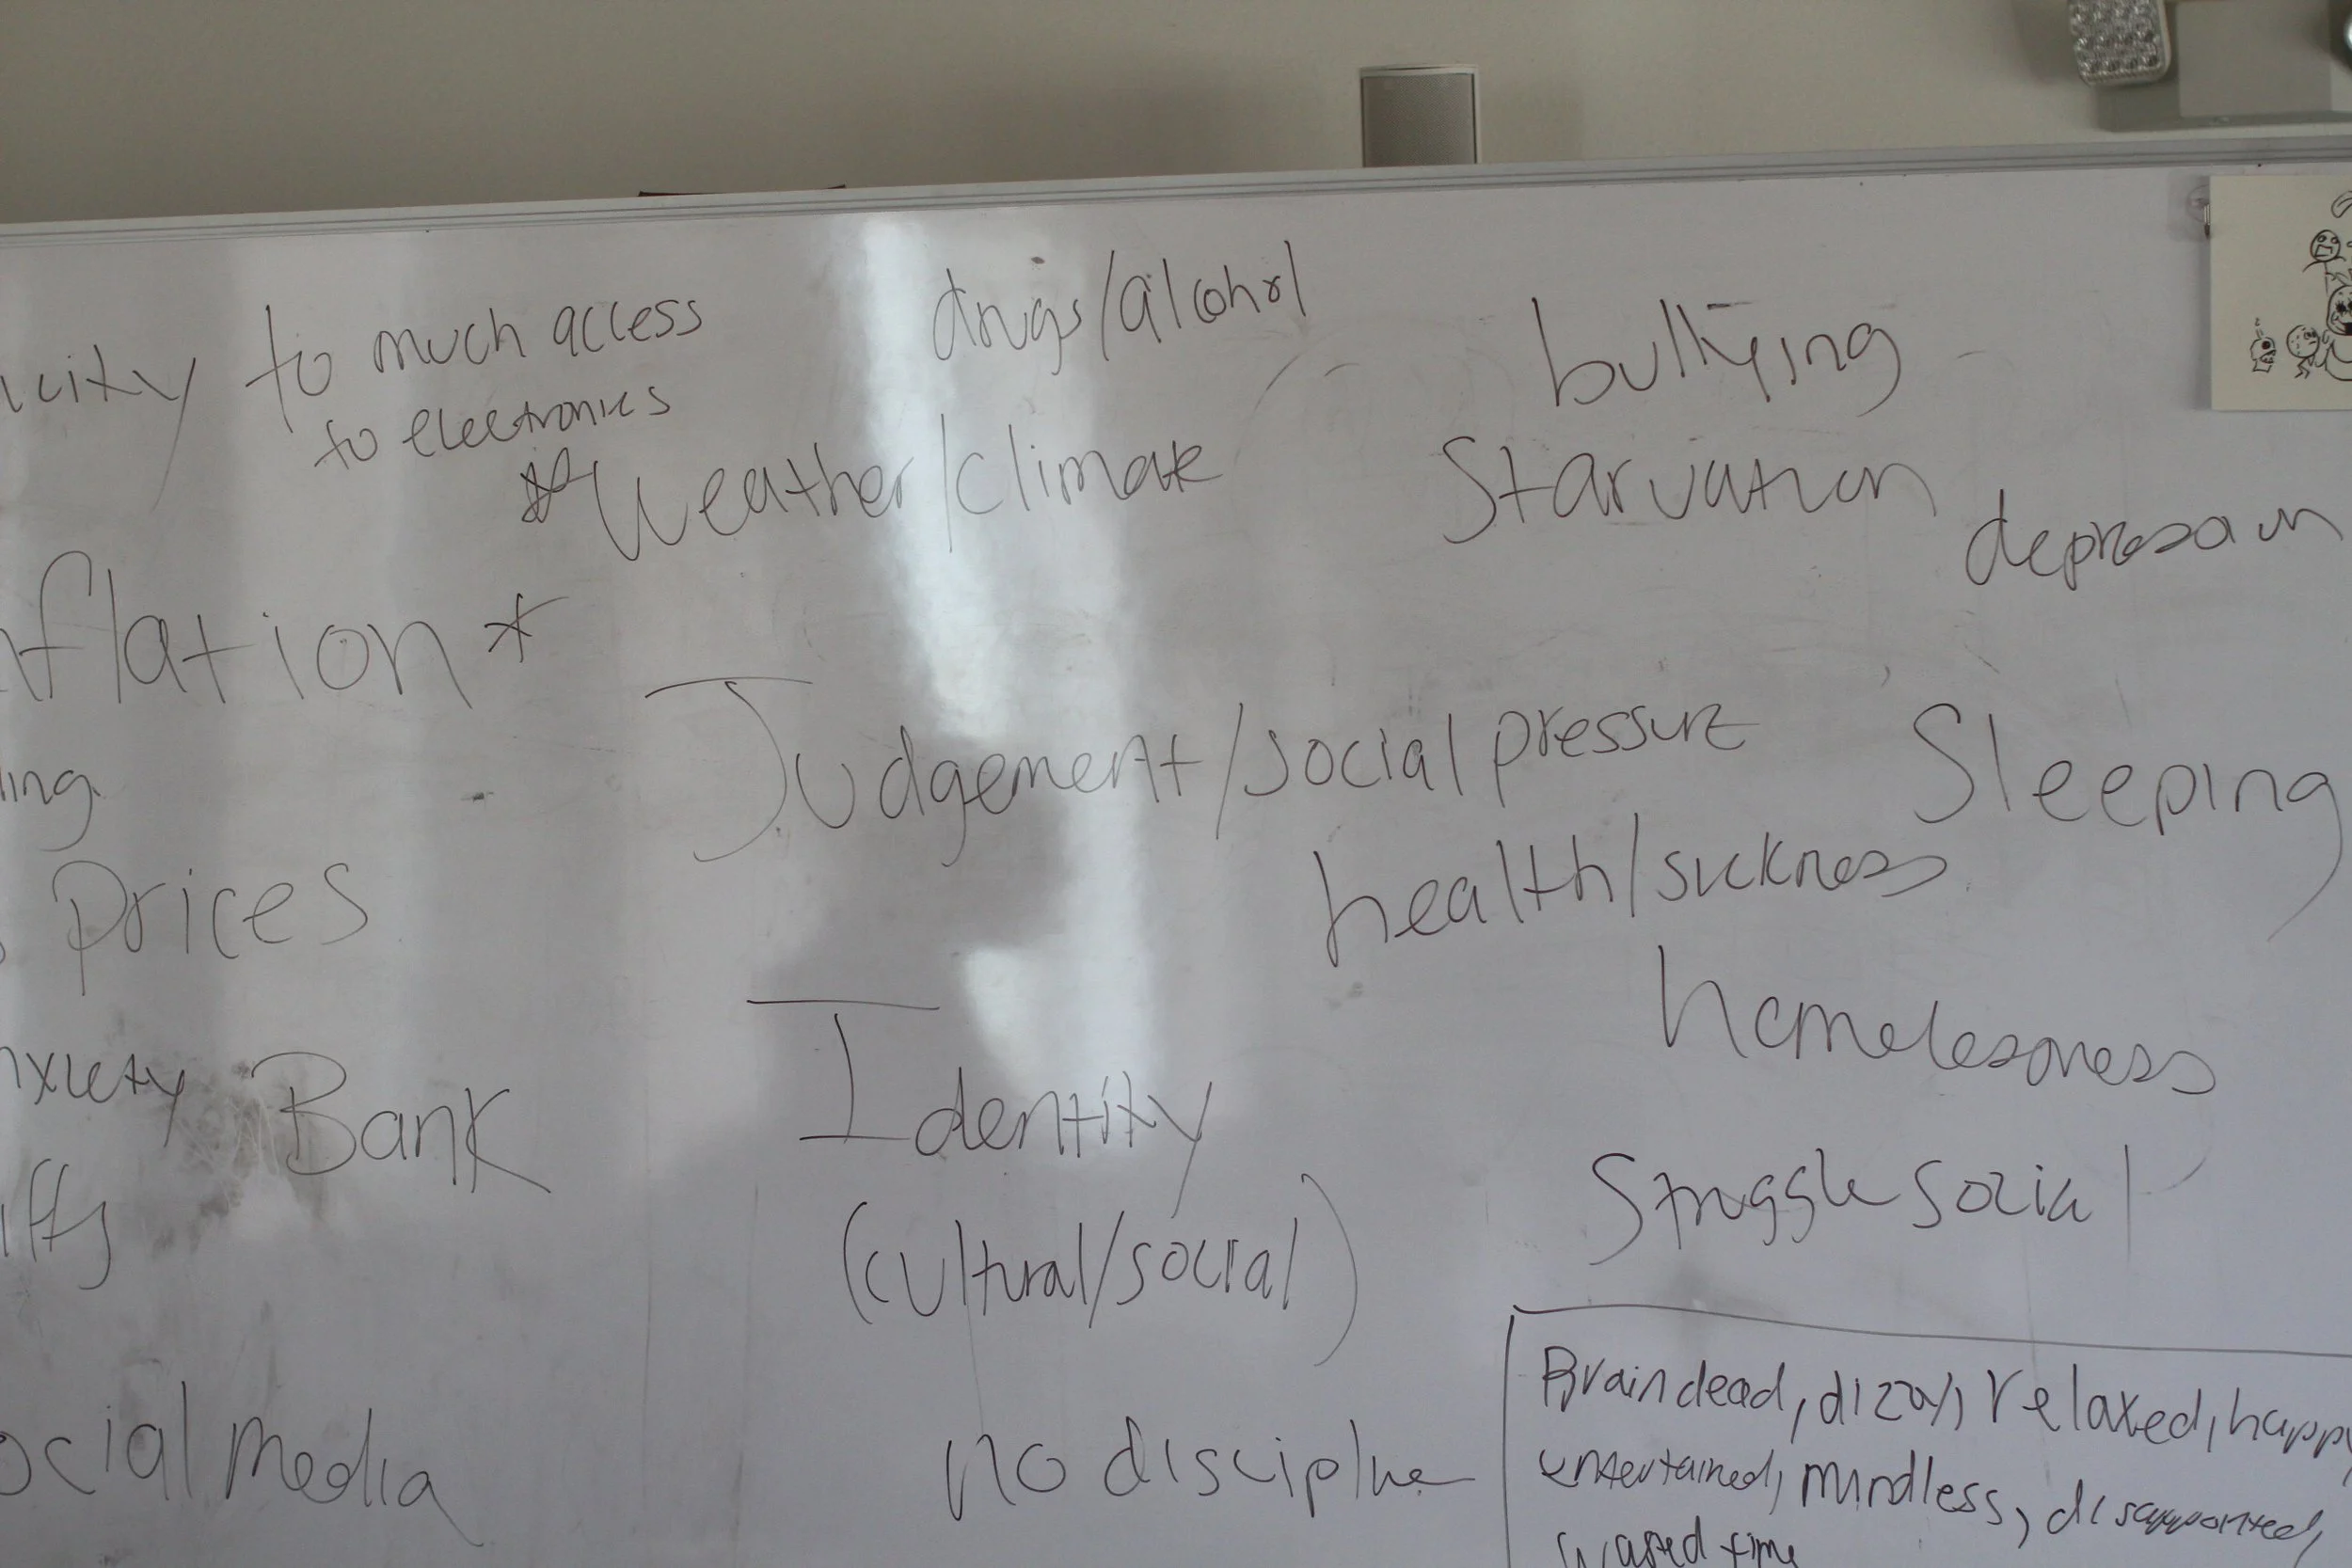 icity to much access
to electronics
drugs/alcohol
bullying
Weather/climate
Starvation
depression
nflation *
Judgement/social pressure
Sleeping
ing
Prices
health/sickness
homelessness
nxiety Bank
Identity
(cultural/social)
Struggle social
ocial media
no discipline
Brain dead, dizzy, relaxed, happy,
entertained, mindless, disappointed,
wasted time